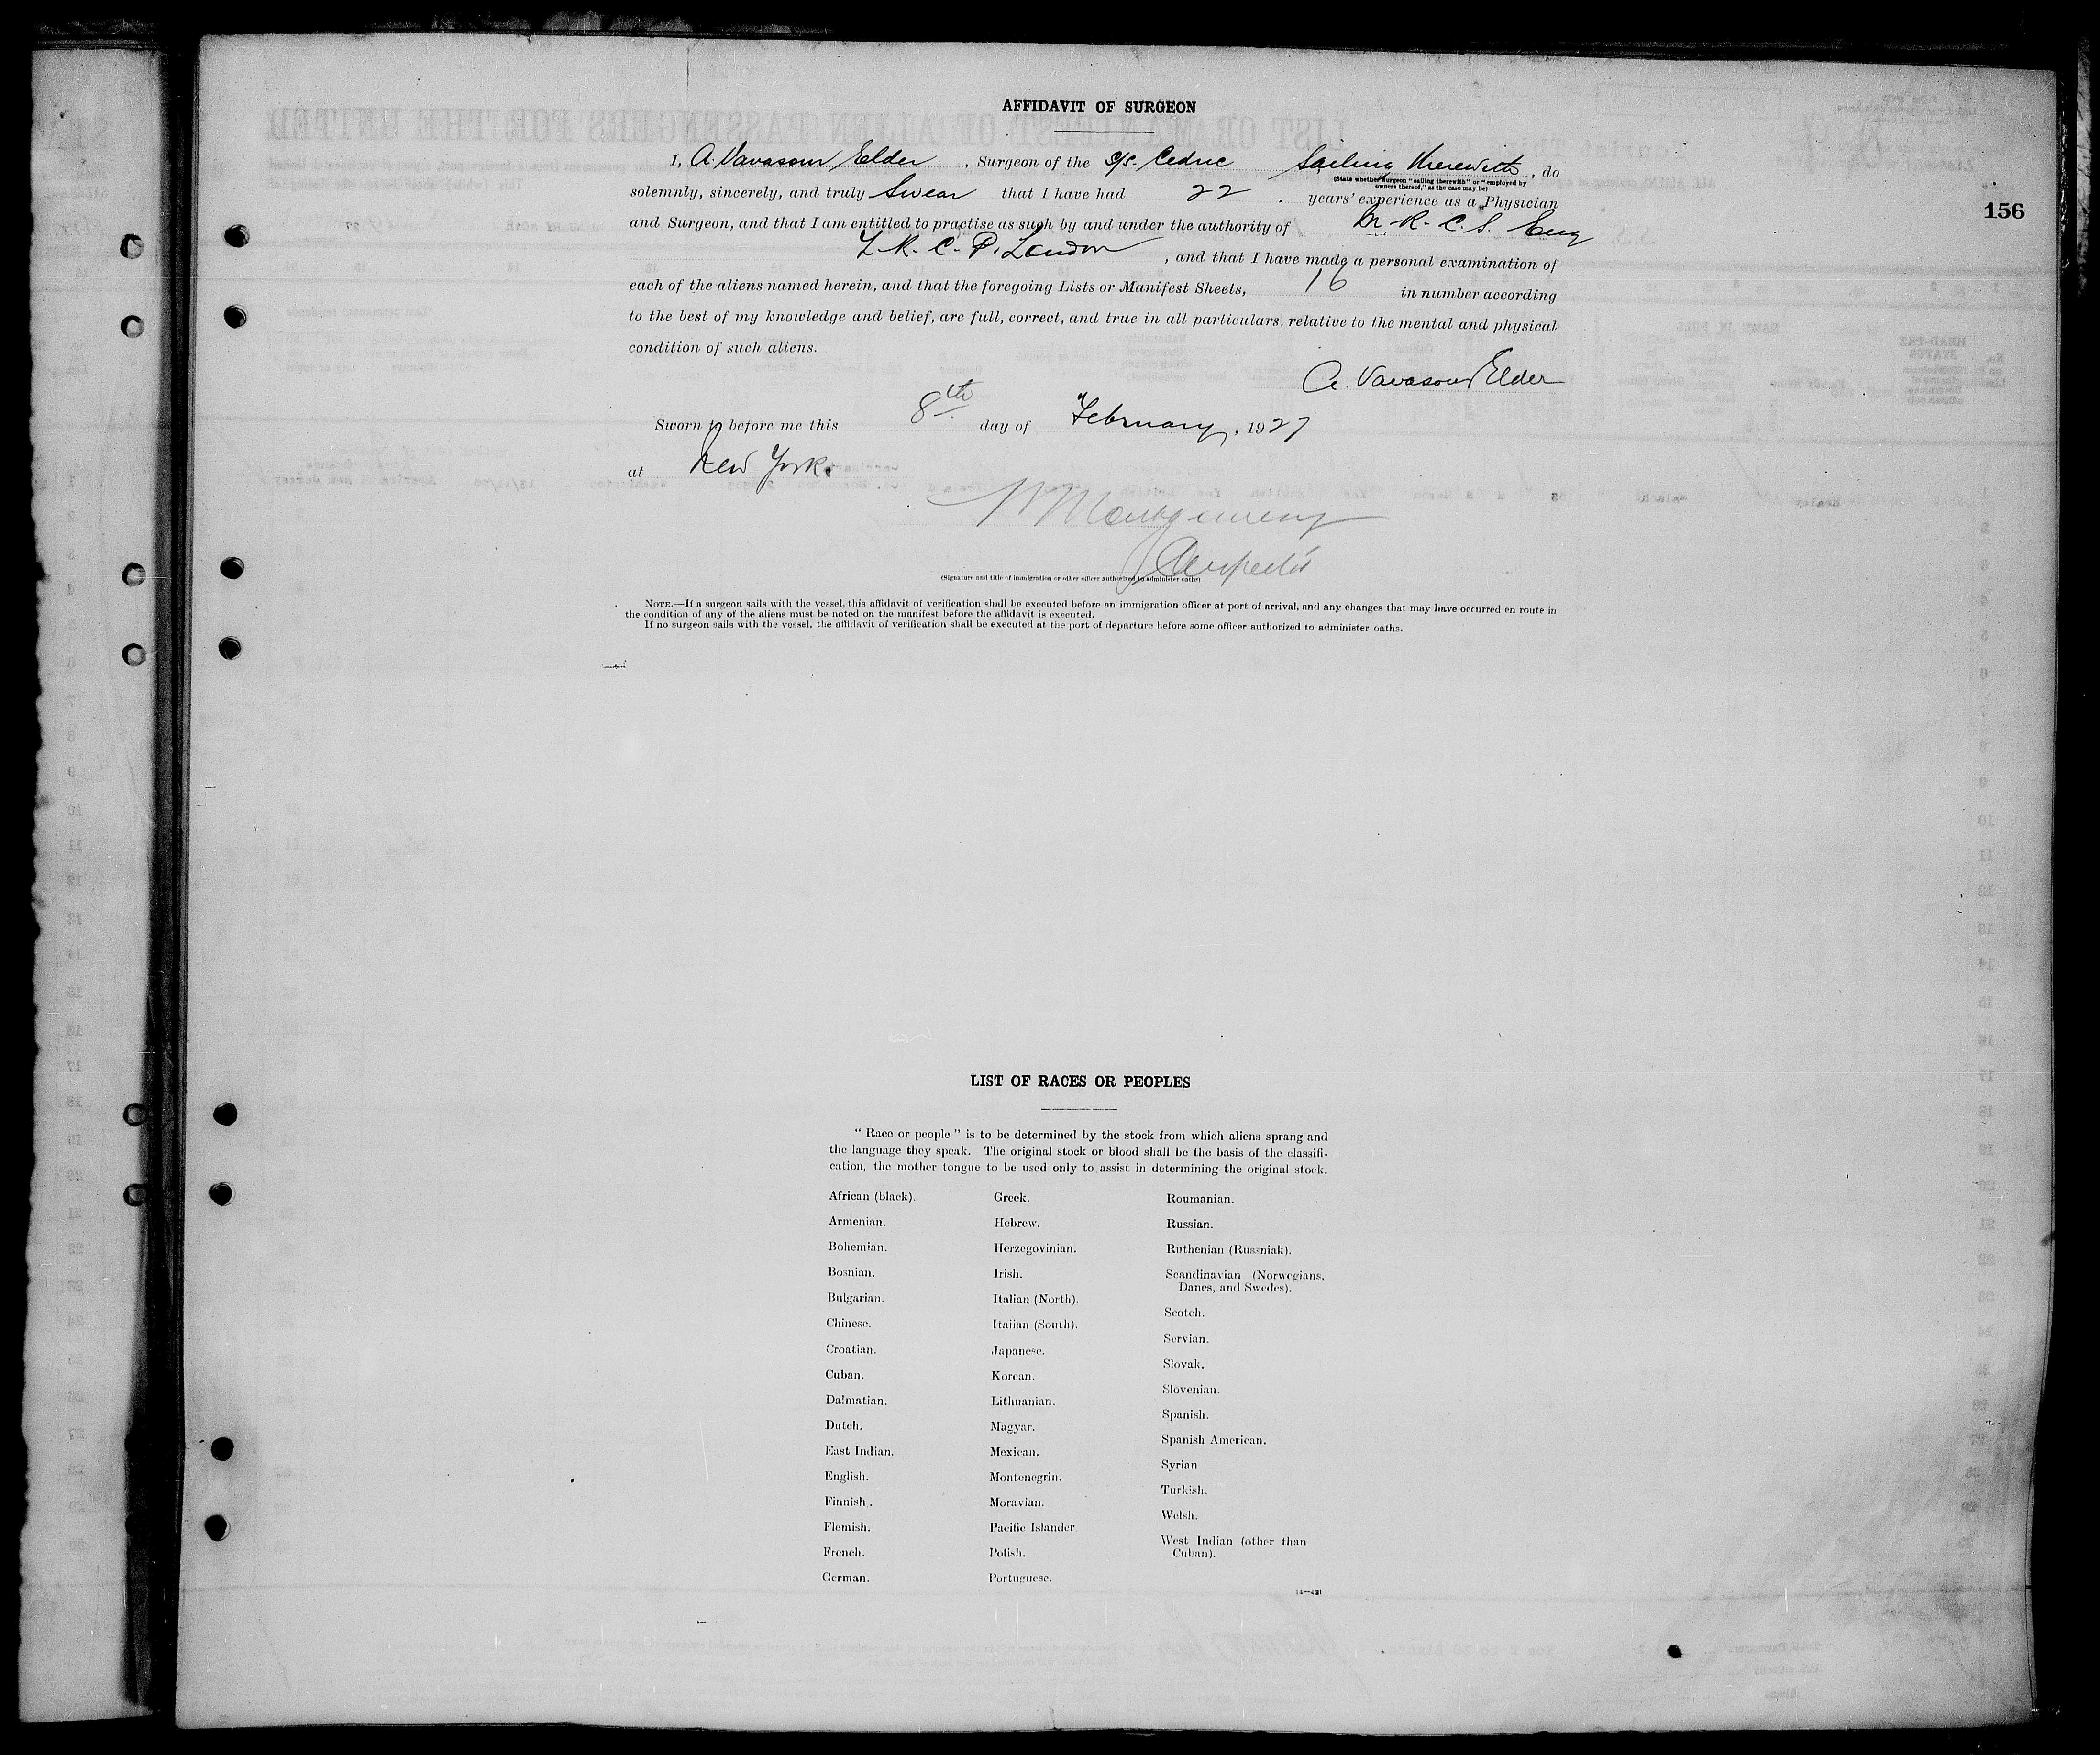 AFFIDAVIT OF SURGEON
I, A. Vavasour Elder, Surgeon of the S/S. Cedric Sailing therewith, do
(State whether Surgeon "sailing therewith" or "employed by
owners thereof," as the case may be)
solemnly, sincerely, and truly Swear that I have had 22 years' experience as a Physician
156
and Surgeon, and that I am entitled to practise as such by and under the authority of M. R. C. S. Eng
L. R. C. P. London, and that I have made a personal examination of
each of the aliens named herein, and that the foregoing Lists or Manifest Sheets, 16 in number according
to the best of my knowledge and belief, are full, correct, and true in all particulars, relative to the mental and physical
condition of such aliens.
A. Vavasour Elder
Sworn to before me this 8th day of February, 1927
at New York.
Montgomery
Inspector
(Signature and title of immigration or other officer authorized to administer oaths)
NOTE.—If a surgeon sails with the vessel, this affidavit of verification shall be executed before an immigration officer at port of arrival, and any changes that may have occurred en route in
the condition of any of the aliens must be noted on the manifest before the affidavit is executed.
If no surgeon sails with the vessel, the affidavit of verification shall be executed at the port of departure before some officer authorized to administer oaths.
LIST OF RACES OR PEOPLES
"Race or people" is to be determined by the stock from which aliens sprang and
the language they speak. The original stock or blood shall be the basis of the classifi-
cation, the mother tongue to be used only to assist in determining the original stock.
African (black).
Armenian.
Bohemian.
Bosnian.
Bulgarian.
Chinese.
Croatian.
Cuban.
Dalmatian.
Dutch.
East Indian.
English.
Finnish.
Flemish.
French.
German.
Greek.
Hebrew.
Herzegovinian.
Irish.
Italian (North).
Italian (South).
Japanese.
Korean.
Lithuanian.
Magyar.
Mexican.
Montenegrin.
Moravian.
Pacific Islander
Polish.
Portuguese.
Roumanian.
Russian.
Ruthenian (Russniak).
Scandinavian (Norwegians,
Danes, and Swedes).
Scotch.
Servian.
Slovak.
Slovenian.
Spanish.
Spanish American.
Syrian
Turkish.
Welsh.
West Indian (other than
Cuban).